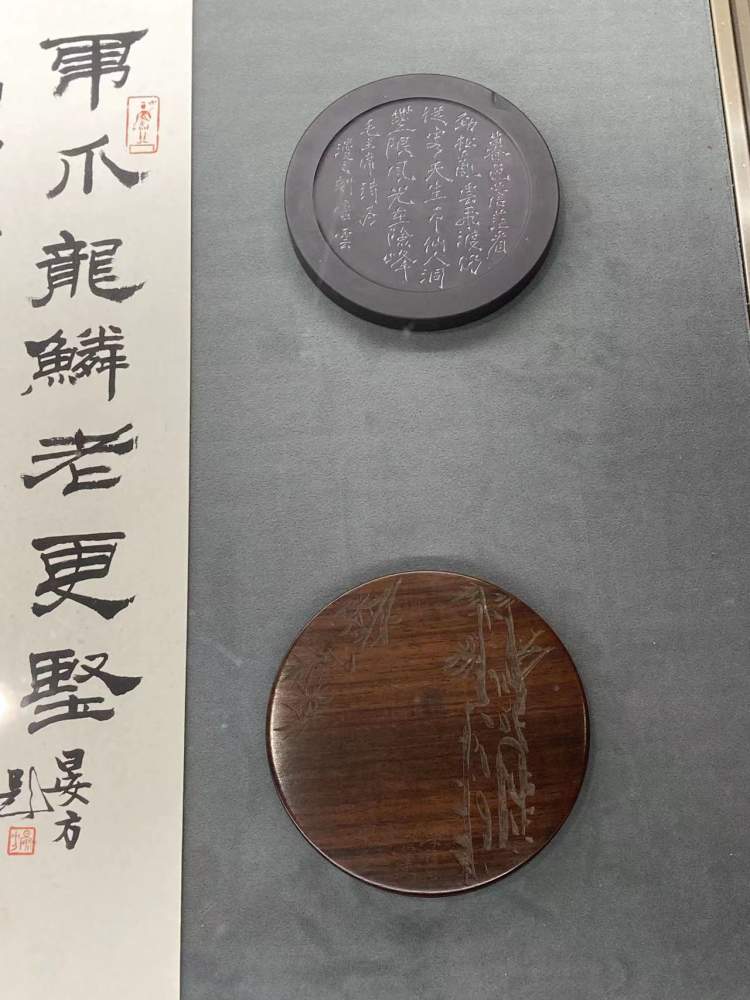 暮色蒼茫看
勁松亂雲飛渡仍
從容天生一个仙人洞
無限風光在險峰
毛主席詩
爪龍鱗老更堅
晏方
題